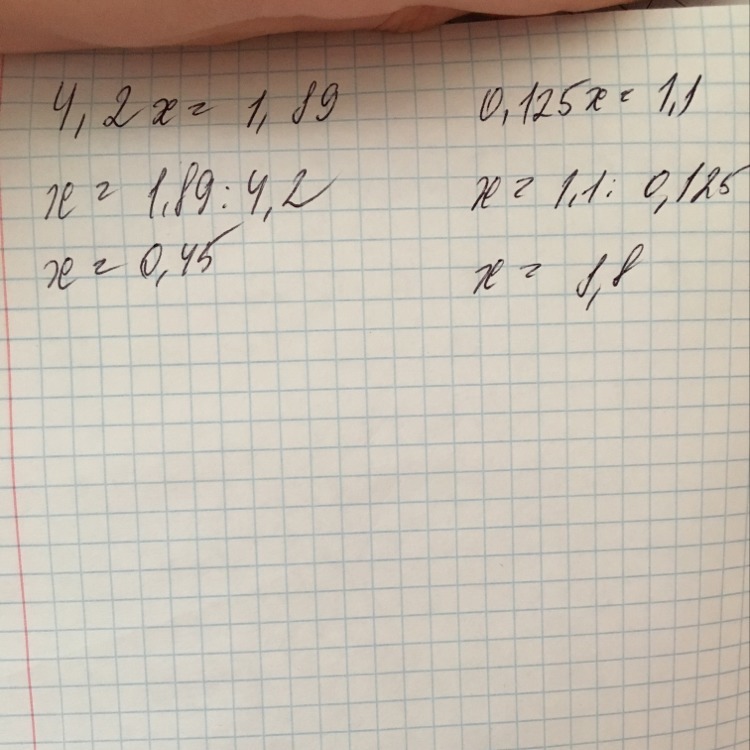 4,2x = 1,89
x = 1,89 : 4,2
x = 0,45
0,125x = 1,1
x = 1,1 : 0,125
x = 8,8